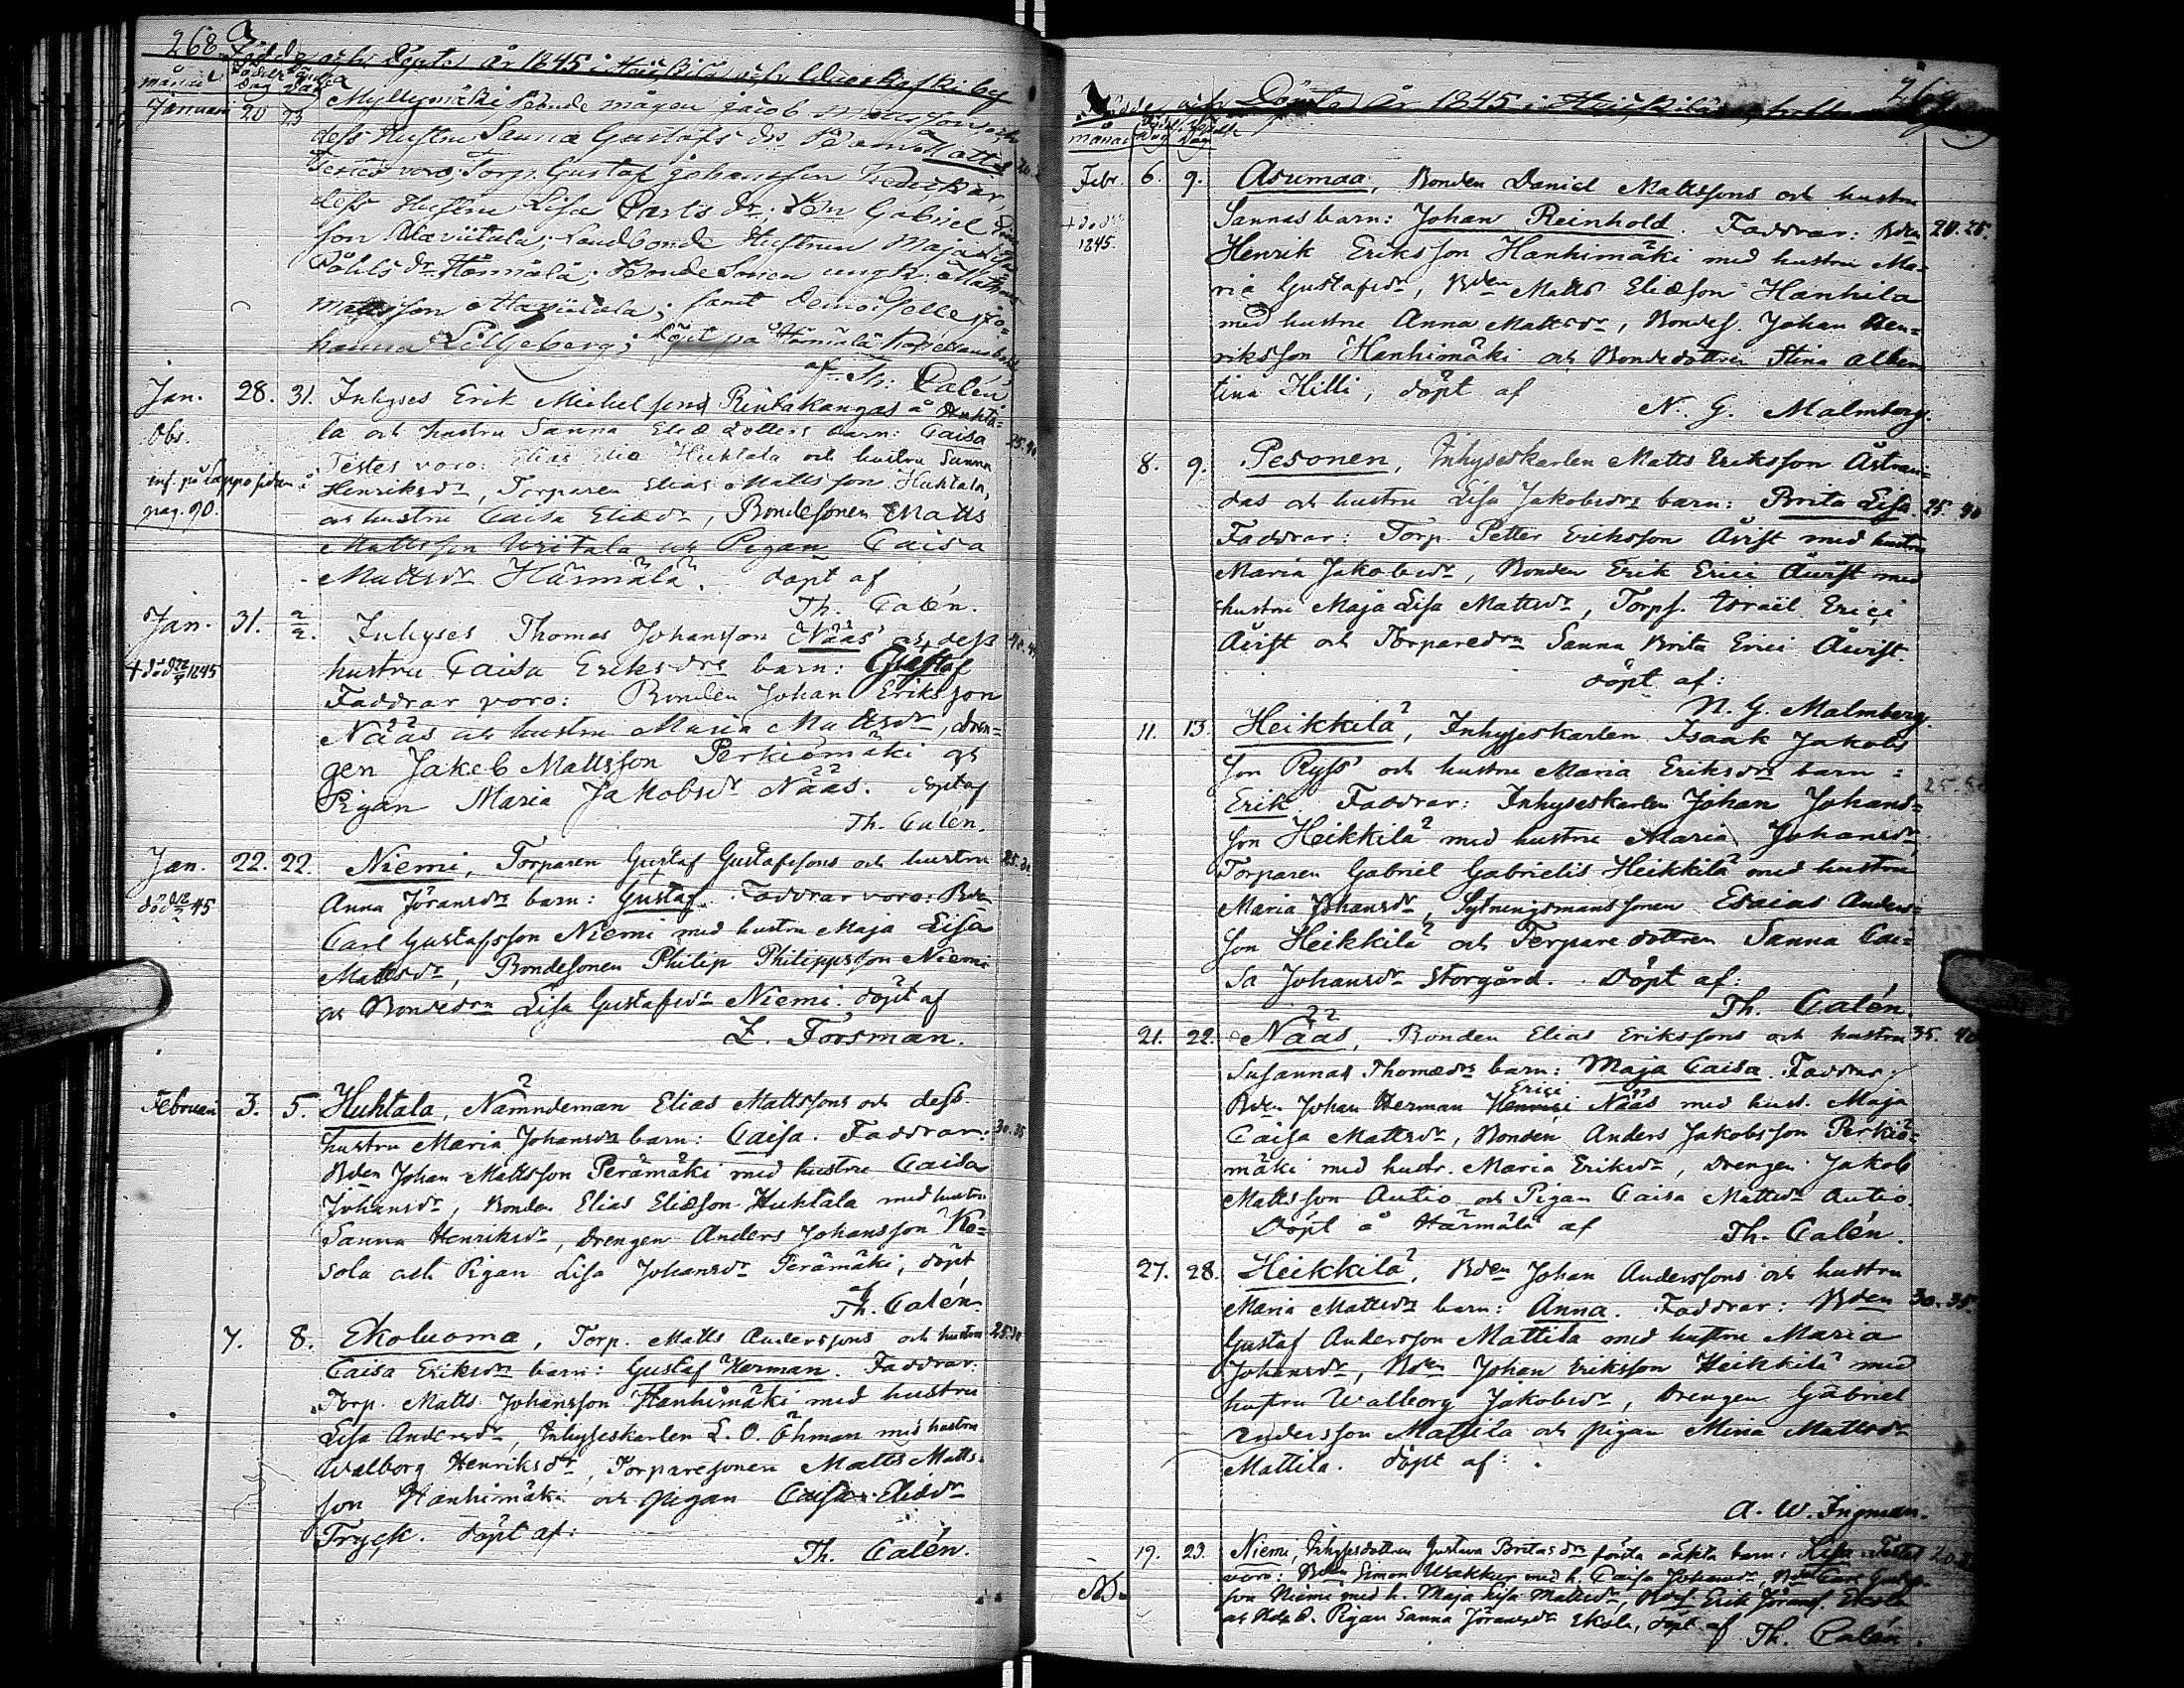 268
Födde och Döpte år 1845 i
månad Födelse dag
Januari 20 23 Myllymäki, Bonde mågen Jacob Mattssons och
dess Hustru Sanna Gustafs dr Barn: Matts
Testes voro, Torp. Gustaf Johansson
dess Hustru Lisa Carls dr; Gabriel
son Alaviitala; Landbonde Hustrun Maja Lisa
Härmälä; Bonde Sonen ungk. Matts
Mattsson Alaviitala; samt Demoiselle Jo=
hanna Liljeberg; Döpt på Härmälä
af Th. Calén
Jan. 28. 31. Inhyses Erik Michelsons Rintakangas å Huhta=
Obs. la och hustru Sanna Eliæ dotters barn: Caisa 25.40
Testes voro: Elias Eliæ Huhtala och hustru Sanna
inf. på Lappo sidan å Henriksdr, Torparen Elias Mattsson Huhtala,
pag. 90. och hustru Caisa Eliædr, Bondesonen Matts
Mattsson Writala och Pigan Caisa
Mattsdr Härmälä. döpt af
Th. Calén.
Jan. 31. 2/2. Inhyses Thomas Johansson Nääs och dess
† död 1845 hustru Caisa Eriksdrs barn: Gustaf
Faddrar voro: Bonden Johan Eriksson
Nääs och hustru Maria Mattsdr, dren=
gen Jakob Mattsson Perkiömäki och
Pigan Maria Jakobsdr Nääs. döpt af
Th. Calén.
Jan. 22. 22. Niemi, Torparen Gustaf Gustafssons och hustru 25.30
död 45 Anna Jöransdrs barn: Gustaf. Faddrar voro: Bdn
Carl Gustafsson Niemi med hustru Maja Lisa
Mattsdr, Bondesonen Philip Philippsson Niemi
och Bondedrn Lisa Gustafsdr Niemi. döpt af
Z. Forsman.
Februari 3. 5. Huhtala, Nämndeman Elias Mattssons och dess
hustru Maria Johansdrs barn: Caisa. Faddrar: 30.35
Bden Johan Mattsson Perämäki med hustru Caisa
Johansdr, Bonden Elias Eliæson Huhtala med hustru
Sanna Henriksdr, drengen Anders Johansson Ke=
sola och Pigan Lisa Johansdr Perämäki, döpt
af
Th. Calén.
7. 8. Ekoluoma, Torp. Matts Anderssons och hustru 25.30
Caisa Eriksdrs barn: Gustaf Herman. Faddrar:
Torp. Matts Johansson Hanhimäki med hustru
Lisa Andersdr, Inhyseskarlen L. O. Öhman med hustru
Walborg Henriksdr, Torparesonen Matts Matts=
son Hanhimäki och pigan Caisa Eliædr
Tryck. döpt af:
Th. Calén.
269
Födde och Döpte år 1845 i
månad
Febr. 6. 9. Asumaa, Bonden Daniel Mattssons och hustru
† död Sannas barn: Johan Reinhold. Faddrar: Bden 20.25.
1845. Henrik Eriksson Hanhimäki med hustru Ma=
ria Gustafsdr, Bden Matts Eliæson Hanhila
med hustru Anna Mattsdr, Bondes. Johan Hen=
riksson Hanhimäki och Bondedottren Stina Alber
tina Hilli, döpt af
N. G. Malmberg.
8. 9. Pesonen, Inhyseskarlen Matts Eriksson Åstran=
das och hustru Lisa Jakobsdrs barn: Brita Lisa 25. 30
Faddrar: Torp. Petter Eriksson Åvist med hustru
Maria Jakobsdr, Bonden Erik Erici Åvist med
hustru Maja Lisa Mattsdr, Torps. Israël Erici
Åvist och Torparedrn Sanna Brita Erici Åvist.
döpt af:
N. G. Malmberg.
11. 13. Heikkilä, Inhyseskarlen Isaak Jakobs
son Ryss och hustru Maria Eriksdrs barn:
Erik. Faddrar: Inhyseskarlen Johan Johans=
son Heikkilä med hustru Maria Johansdr,
Torparen Gabriel Gabrielis Heikkilä med hustru
Maria Johansdr, Sytningsmanssonen Esaias Anders=
son Heikkilä och Torparedottren Sanna Cai=
sa Johansdr Storgård. Döpt af:
Th. Calén.
21. 22. Nääs, Bonden Elias Erikssons och hustru 35. 40.
Susannas Thomædrs barn: Maja Caisa. Faddrar:
Erici
Bdn Johan Herman Henrici Nääs med hust. Maja
Caisa Mattsdr, Bonden Anders Jakobsson Perkiö=
mäki med hustr. Maria Eriksdr, drengen Jakob
Mattsson Autio och Pigan Caisa Mattsdr Autio.
Döpt å Härmälä af Th. Calén.
27. 28. Heikkilä, Bden Johan Anderssons och hustru
Maria Mattsdrs barn: Anna. Faddrar: Bden 30.35.
Gustaf Andersson Mattila med hustru Maria
Johansdr, Bden Johan Eriksson Heikkilä med
hustru Walborg Jakobsdr, drengen Gabriel
Andersson Mattila och pigan Mina Mattsdr
Mattila. döpt af:
A. W. Ingman.
19. 23. Niemi, Inhysesdottren Gustava Britas drs första oäkta barn: Lisa. Testes
voro: Bden Simon Wakker med h. Caisa Johansdr, Bden Carl Gustafs
son Niemi med h. Maja Lisa Mattsdr, Bdes. Erik Jöranss. Ekola
och Pigan Sanna Jöransdr Ekola, döpt af Th. Calén.